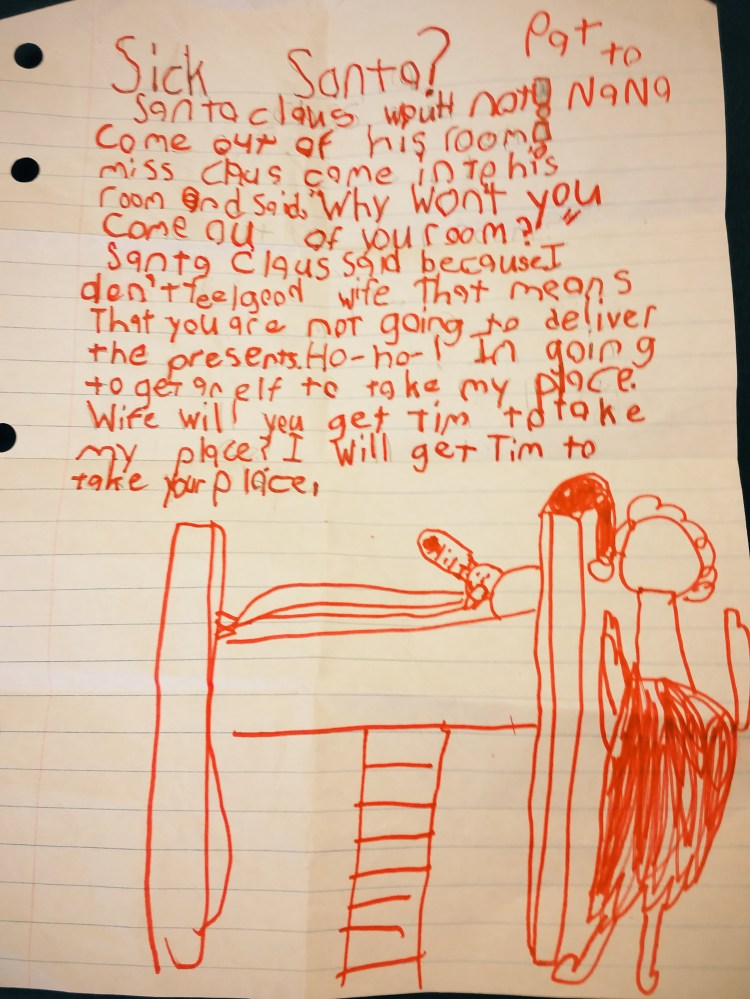 Sick Santa?
Pat to
NaNa
Santa claus woultt not
Come out of his room!
miss Claus came into his
room and said, "Why won't you
Come ou of you room?"
Santa Claus said because I
den't feel good wife That means
That you are not going to deliver
the presents. Ho-ho-! In going
to get an elf to take my place.
Wife will you get Tim to take
my place? I will get Tim to
take your place.